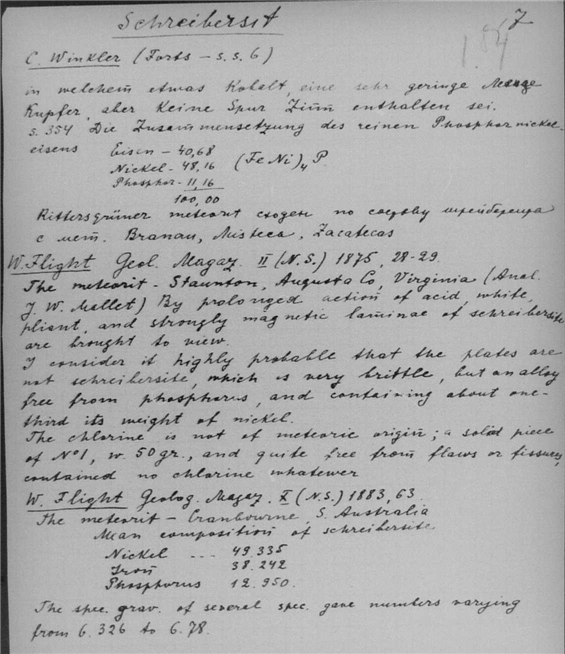 Schreibersit
7
1.84
C. Winkler (Forts – S.S. 6)
in welchem etwas Kobalt, eine sehr geringe Menge
Kupfer, aber keine Spur Zinn enthalten sei.
S. 354 Die Zusammensetzung des reinen Phosphornickel-
eisens Eisen – 40,68
Nickel – 48,16 (Fe Ni)4 P.
Phosphor – 11,16
100,00
Rittersgrüner meteorit сходен по составу шрейберзита
с мет. Branau, Misteca, Zacatecas
W. Flight Geol. Magaz. II (N.S.) 1875, 28-29.
The meteorit – Staunton, Augusta Co, Virginia (Anal.
J. W. Mallet) By prolonged action of acid, white,
pliant, and strongly magnetic laminae of schreibersite
are brought to view.
I consider it highly probable that the plates are
not schreibersite, which is very brittle, but an alloy
free from phosphorus, and containing about one-
third its weight of nickel.
The chlorine is not of meteoric origin; a solid piece
of No 1, w. 50 gr., and quite free from flaws or fissures,
contained no chlorine whatever
W. Flight Geolog. Magaz. X (N.S.) 1883, 63.
The meteorit – Cranbourne, S. Australia
Mean composition of schreibersite
Nickel ... 49.335
Iron 38.242
Phosphorus 12.950.
The spec. grav. of several spec. gave numbers varying
from 6.326 to 6.78.